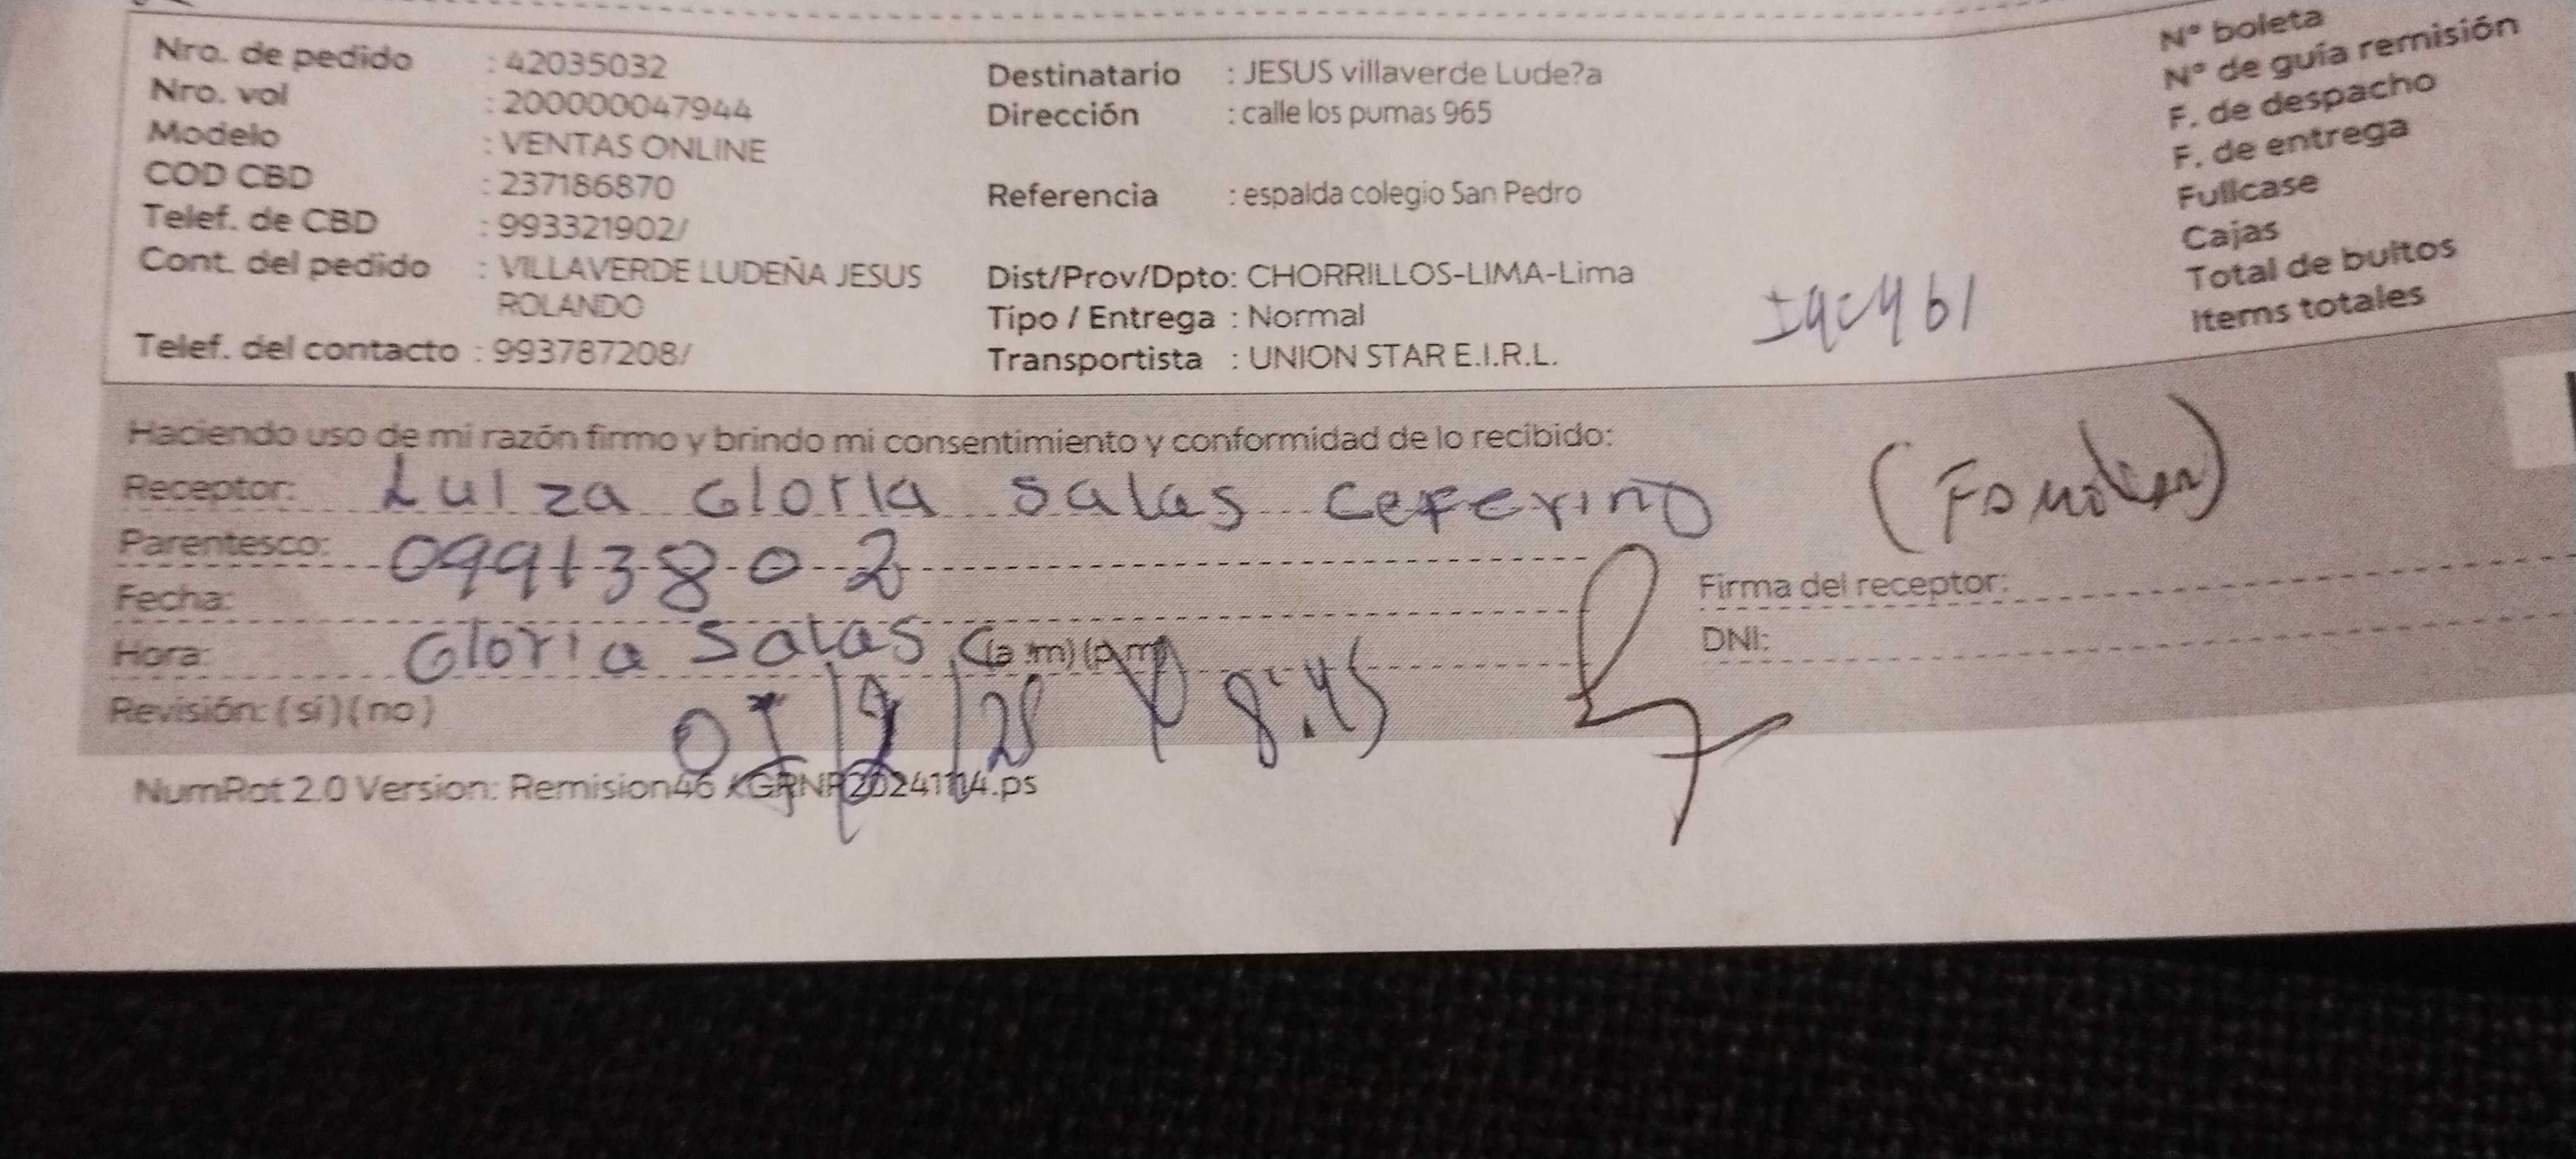 Nro. de pedido : 42035032
Nro. vol : 200000047944
Modelo : VENTAS ONLINE
COD CBD : 237186870
Telef. de CBD : 993321902/
Cont. del pedido : VILLAVERDE LUDEÑA JESUS
ROLANDO
Telef. del contacto : 993787208/
Destinatario : JESUS villaverde Lude?a
Dirección : calle los pumas 965
Referencia : espalda colegio San Pedro
Dist/Prov/Dpto: CHORRILLOS-LIMA-Lima
Tipo / Entrega : Normal
Transportista : UNION STAR E.I.R.L.
N° boleta
N° de guía remisión
F. de despacho
F. de entrega
Fullcase
Cajas
Total de bultos
Items totales
Haciendo uso de mi razón firmo y brindo mi consentimiento y conformidad de lo recibido:
Receptor: Luiza Gloria Salas Ceferino (Familiar)
Parentesco: 09913802
Fecha:
Hora: Gloria Salas C (a.m) (p.m)
Revisión: (sí) (no) 8:45
Firma del receptor:
DNI:
NumRot 2.0 Version: Remision46 /GRNP20241114.ps